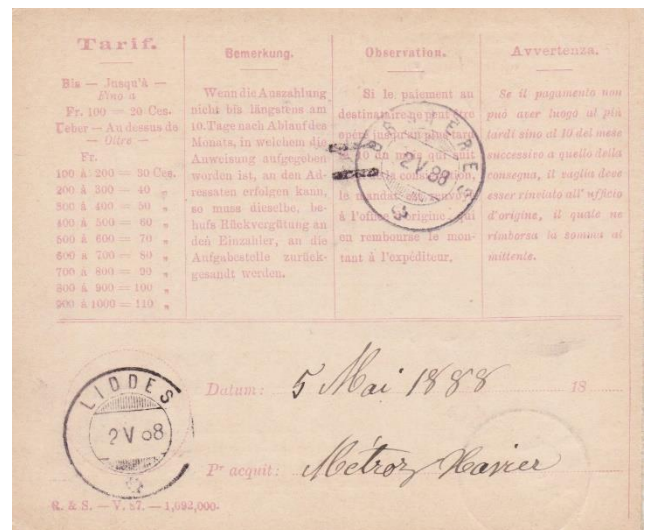 Tarif.
Bis — Jusqu'à —
Fino a
Fr. 100 = 20 Ces.
Ueber — Au dessus de
— Oltre —
Fr.
100 à 200 = 30 Ces.
200 à 300 = 40 "
300 à 400 = 50 "
400 à 500 = 60 "
500 à 600 = 70 "
600 à 700 = 80 "
700 à 800 = 90 "
800 à 900 = 100 "
900 à 1000 = 110 "
Bemerkung.
Wenn die Auszahlung
nicht bis längstens am
10. Tage nach Ablauf des
Monats, in welchem die
Anweisung aufgegeben
worden ist, an den Ad-
ressaten erfolgen kann,
so muss dieselbe, be-
hufs Rückvergütung an
den Einzahler, an die
Aufgabestelle zurück-
gesandt werden.
Observation.
Si le paiement au
destinataire ne peut être
opéré jusqu'au plus tard
10 du mois qui suit
la consignation,
le mandat
à l'office d'origine, qui
en rembourse le mon-
tant à l'expéditeur.
Avvertenza.
Se il pagamento non
può aver luogo al più
tardi sino al 10 del mese
successivo a quello della
consegna, il vaglia deve
esser rinviato all' ufficio
d'origine, il quale ne
rimborsa la somma al
mittente.
2 V 88
LIDDES
2 V 88
Datum: 5 Mai 1888 18
Pr acquit: Métroz Xavier
R. & S. — V. 87. — 1,092,000.